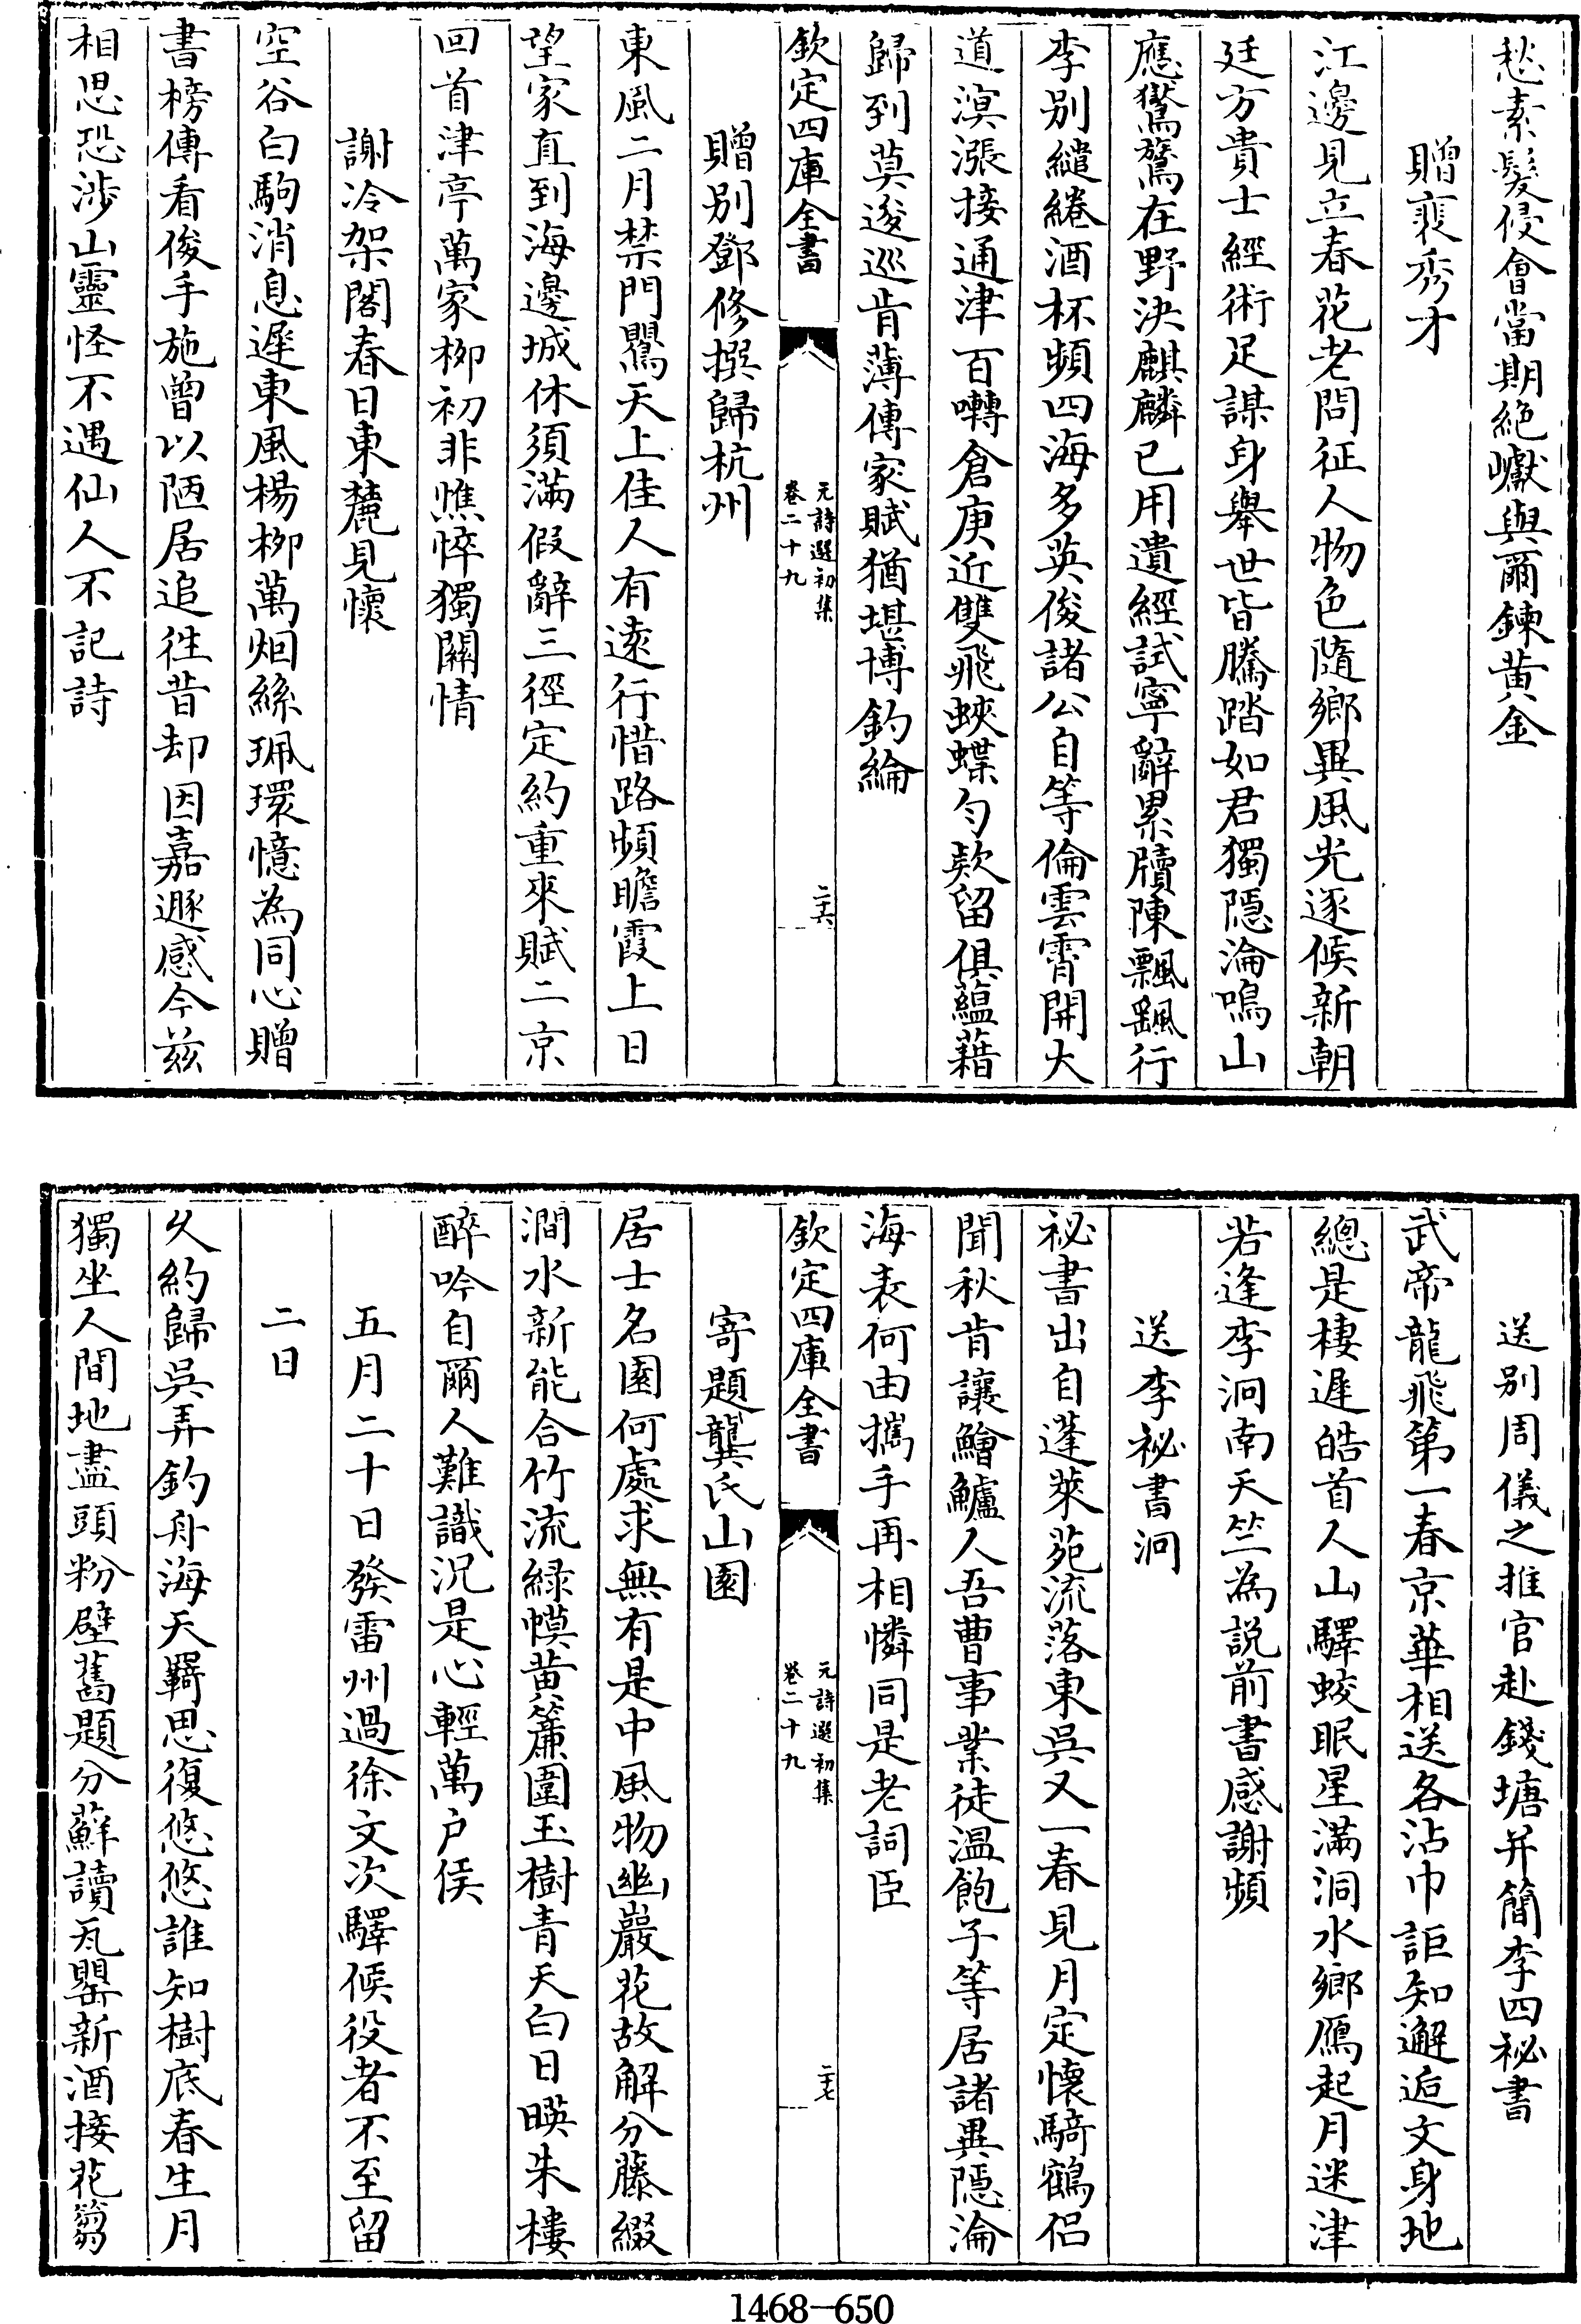 愁素髮侵會當期絶巘與爾鍊黄金
贈裴秀才
江邊見立春花老問征人物色隨鄉異風光逐候新朝
廷方貴士經術足謀身舉世皆騰踏如君獨隠淪鳴山
應鸑鷟在野决麒麟已用遺經試寧辭累牘陳飄飖行
李别繾綣酒杯頻四海多英俊諸公自等倫雲霄開大
道溟漲接通津百囀倉庚近雙飛蛺蝶勻欵留俱藴藉
歸到莫逡巡肯薄傳家賦猶堪博釣綸
欽定四庫全書
元詩選初集
卷二十九
二十六
贈别鄧修撰歸杭州
東風二月禁門鸎天上佳人有逺行惜路頻瞻霞上日
望家直到海邊城休須滿假辭三徑定約重來賦二京
回首津亭萬家栁初非憔悴獨關情
謝冷架閣春日東麓見懷
空谷白駒消息遲東風楊栁萬烟絲珮環憶為同心贈
書榜傳看俊手施曾以陋居追徃昔却因嘉遯感今兹
相思恐渉山靈怪不遇仙人不記詩
送别周儀之推官赴錢塘并簡李四秘書
武帝龍飛第一春京華相送各沾巾詎知邂逅文身地
總是棲遲皓首人山驛蛟眠星滿洞水鄉鴈起月迷津
若逢李泂南天竺為説前書感謝頻
送李祕書泂
祕書出自蓬萊苑流落東吳又一春見月定懷騎鶴侣
聞秋肯讓鱠鱸人吾曹事業徒温飽子等居諸異隠淪
海表何由攜手再相憐同是老詞臣
欽定四庫全書
元詩選初集
卷二十九
二十七
寄題龔氏山園
居士名園何處求無有是中風物幽巖花故解分藤綴
澗水新能合竹流緑幙黄簾圍玉樹青天白日暎朱樓
醉吟自爾人難識況是心輕萬户侯
五月二十日發雷州過徐文次驛候役者不至留
二日
久約歸吳弄釣舟海天羇思復悠悠誰知樹底春生月
獨坐人間地盡頭粉壁舊題分蘚讀瓦罌新酒接花篘
1468—650